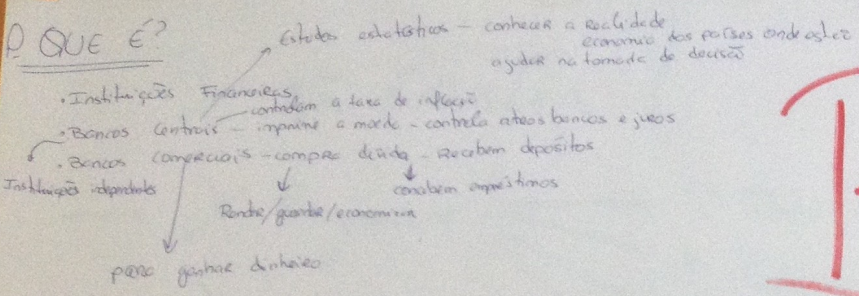 O QUE É?
Estudos estatísticos - conhecer a realidade
economia dos países onde
ajudar na tomada de decisão
• Instituições Financeiras
controlam a taxa de inflação
• Bancos Centrais - imprime a moeda - controla bancos e juros
• Bancos comerciais - compra dívida - Recebem depósitos
Instituições independentes
concebem empréstimos
Render/guardar/economizar
para ganhar dinheiro